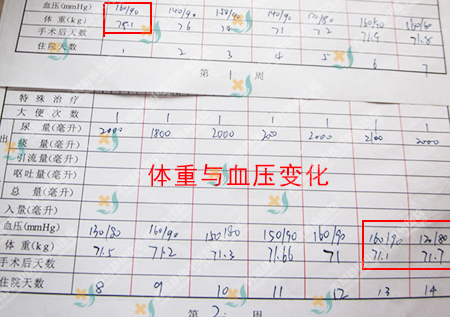 血压(mmHg) 160/90 140/90 150/90 140/90 120/80 160/90 160/80
体 重(kg) 75.1 76 71 72 71.5 71.8
手术后天数
住院天数 1 2 3 4 5 6 7
第 1 周
特殊治疗
大便次数 1 1 1 1 1 1 1
尿 量(毫升) 2000 1800 2000 200 2000 2100 2000
出 痰 量(毫升)
引流量(毫升)
呕吐量(毫升)
总 量(毫升)
体重与血压变化
入量(毫升)
血压(mmHg) 130/80 160/90 150/80 150/90 160/90 160/90 120/80
体 重(kg) 71.5 71.2 71.3 71.66 71 71.1 71.7
手术后天数
住院天数 8 9 10 11 12 13 14
第 2 周